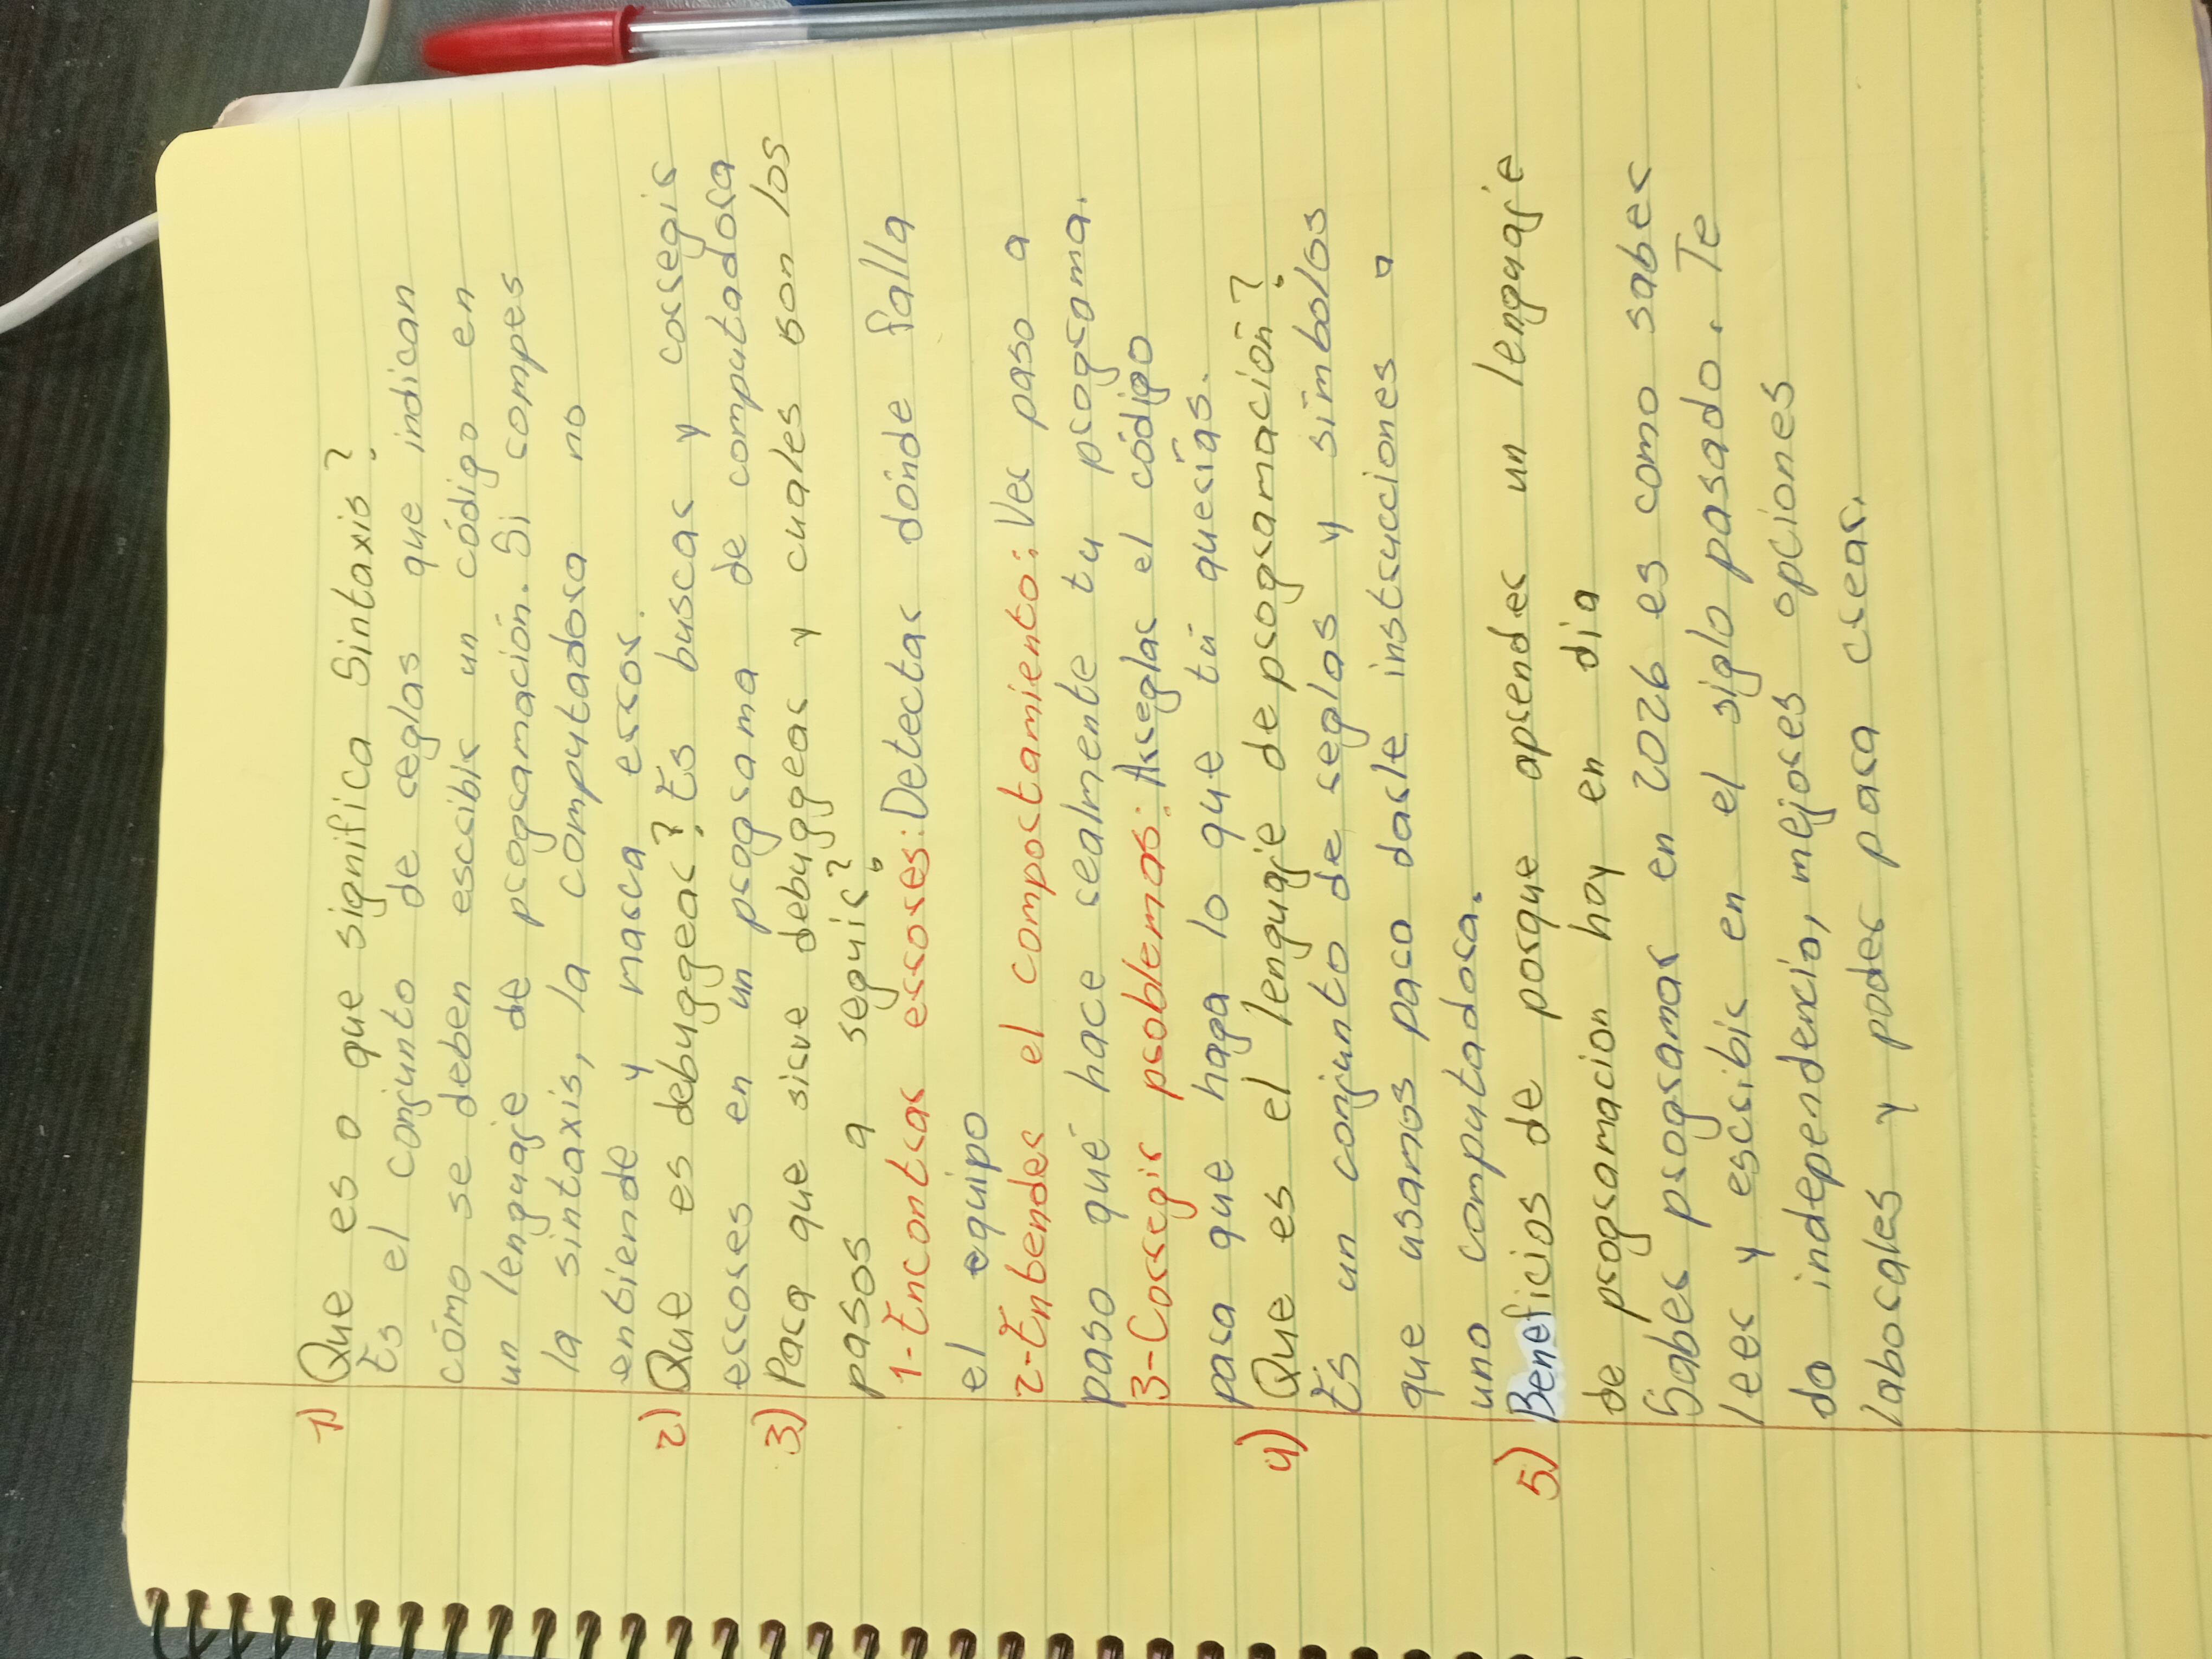 1) Que es o que significa Sintaxis?
Es el conjunto de reglas que indican
cómo se deben escribir un código en
un lenguaje de programación. Si rompes
la sintaxis, la computadora no
entiende y marca error.
2) Que es debuggear? Es buscar y corregir
errores en un programa de computadora
3) Para que sirve debuggear y cuales son los
pasos a seguir?
1-Encontrar errores: Detectar dónde falla
el equipo
2-Entender el comportamiento: Ver paso a
paso qué hace realmente tu programa.
3-Corregir problemas: Arreglar el código
para que haga lo que tú querías.
4) Que es el lenguaje de programación?
Es un conjunto de reglas y símbolos
que usamos para darle instrucciones a
una computadora.
5) Beneficios de porque aprender un lenguaje
de programacion hoy en dia
Saber programar en 2026 es como saber
leer y escribir en el siglo pasado. Te
da independencia, mejores opciones
laborales y poder para crear.